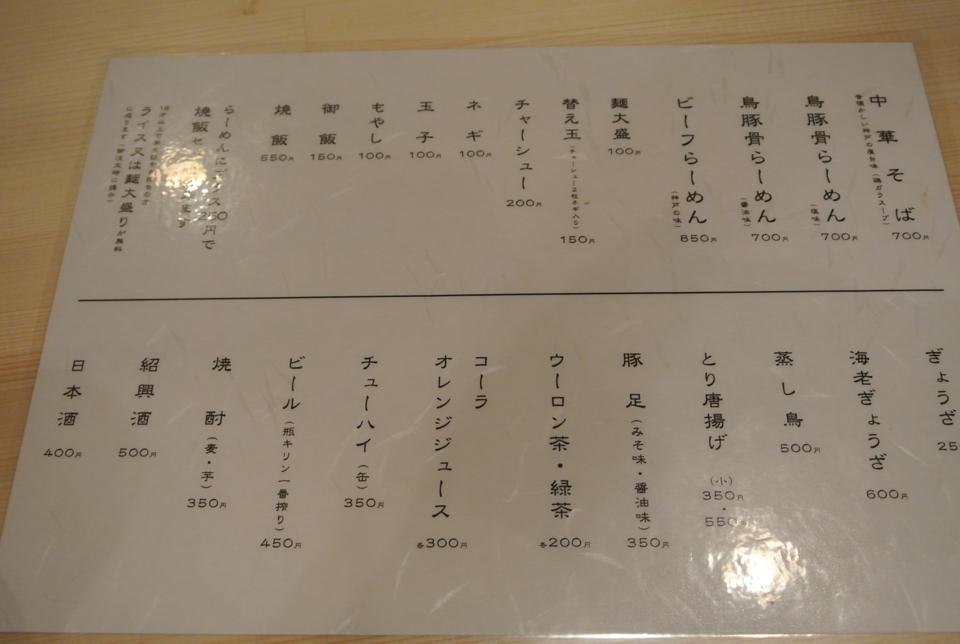 中華そば
昔懐かしい神戸の屋台味(鶏ガラスープ)
700円
鳥豚骨らーめん
(塩味)
700円
鳥豚骨らーめん
(醤油味)
700円
ビーフらーめん
(神戸の味)
850円
麺大盛
100円
替え玉(チャーシュー2枚ネギ入り)
150円
チャーシュー
200円
ネギ
100円
玉子
100円
もやし
100円
御飯
150円
焼飯
550円
らーめんにプラス250円で
焼飯セ
ライス又は麺大盛りが無料
ぎょうざ
25
海老ぎょうざ
600円
蒸し鳥
500円
とり唐揚げ
(小)
350円
・
550
豚足(みそ味・醤油味)
350円
ウーロン茶・緑茶
各200円
コーラ
オレンジジュース
各300円
チューハイ(缶)
350円
ビール(瓶キリン一番搾り)
450円
焼酎(麦・芋)
350円
紹興酒
500円
日本酒
400円